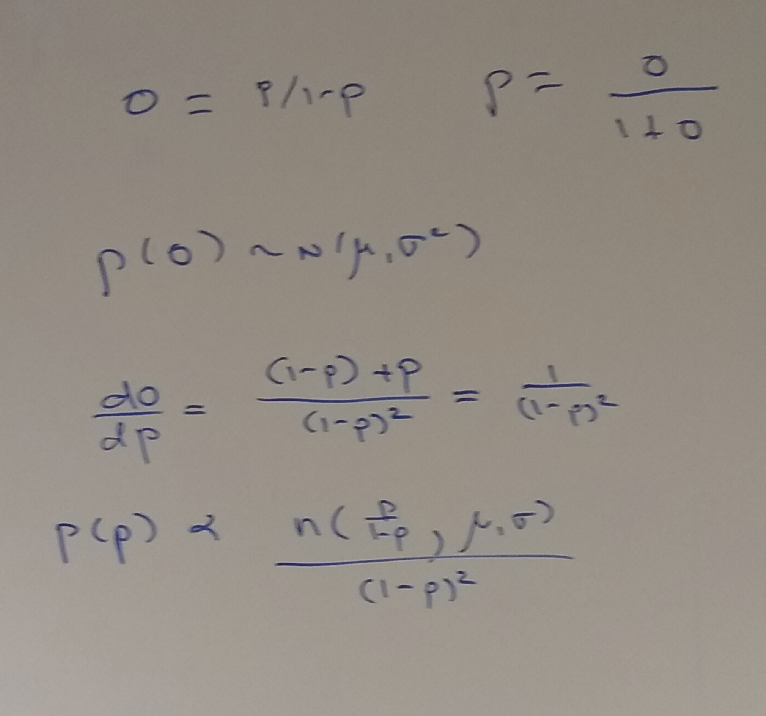 o = p/1-p    p = o/(1+o)
p(o) ~ N(μ, σ²)
do/dp = ((1-p)+p)/(1-p)² = 1/(1-p)²
p(p) ∝ n(p/(1-p), μ, σ)/(1-p)²